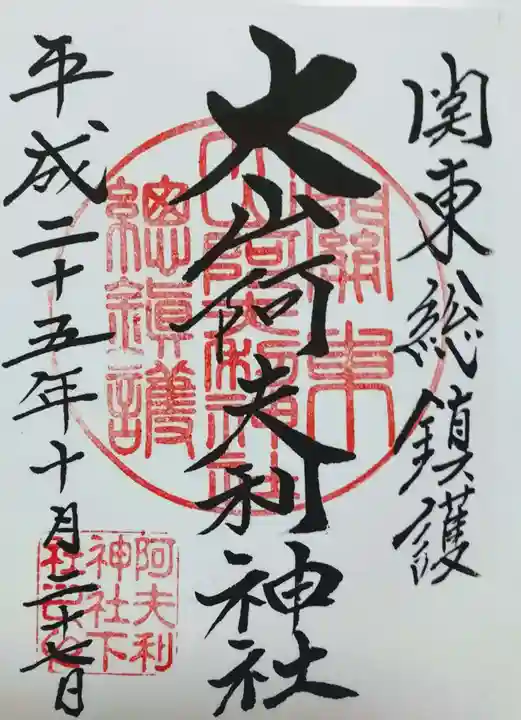 関東総鎮護
大山阿夫利神社
平成二十五年十月二十七日
關東
大山阿夫利神社
總鎮護
阿夫利
神社下
社